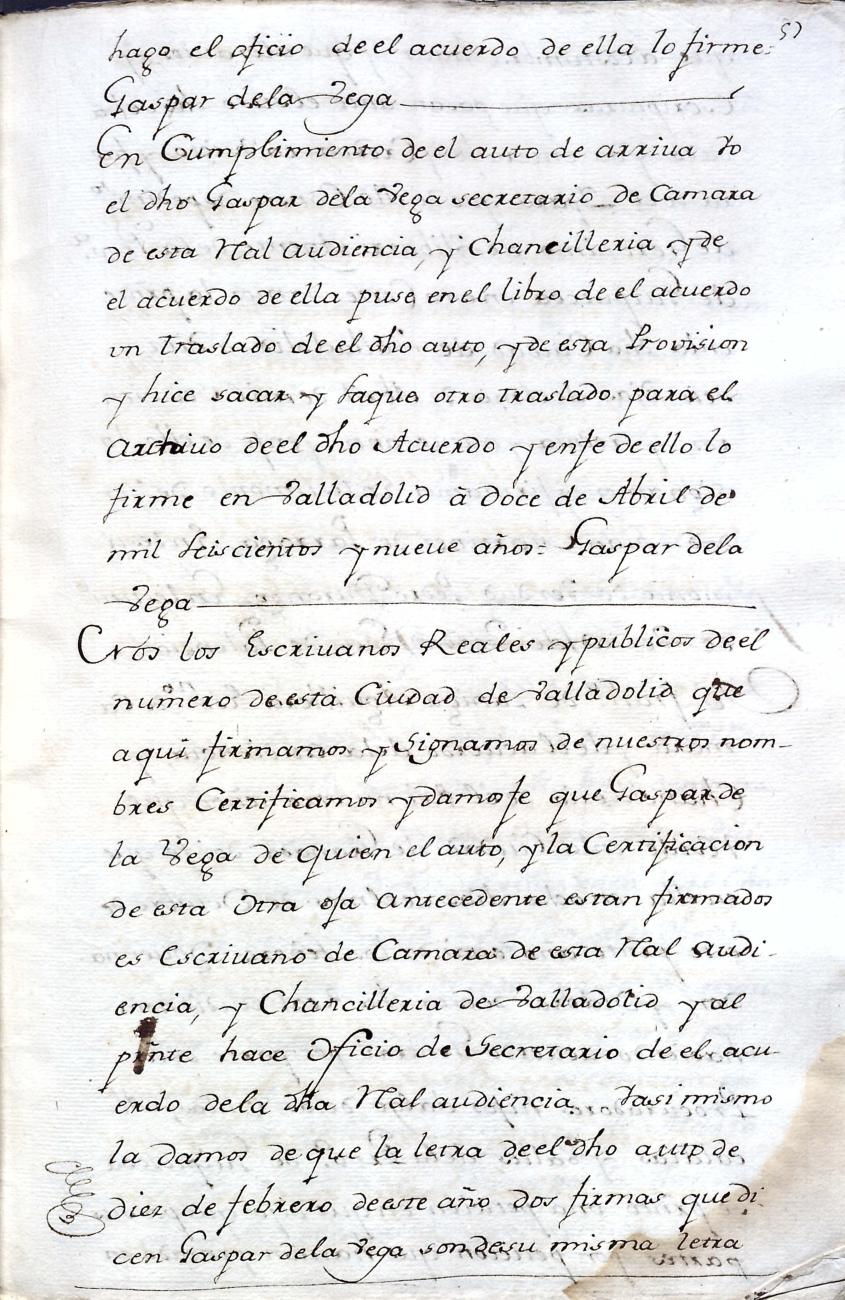 57
hago el oficio de el acuerdo de ella lo firme=
Gaspar dela Vega
En Cumplimiento de el auto de arriva Yo
el dho Gaspar dela Vega secretario de Camara
de esta Rl al audiencia, y Chancilleria y de
el acuerdo de ella puse en el libro de el acuerdo
vn traslado de el dho auto, y de esta Provision
y hice sacar y saque otro traslado para el
Archivo de el dho Acuerdo y en fe de ello lo
firme en Valladolid à doce de Abril de
mil seiscientos y nueve años= Gaspar dela
Vega
Nos los Escrivanos Reales y publicos de el
numero de esta Ciudad de Valladolid que
aqui firmamos y signamos de nuestros nom-
bres Certificamos y damos fe que Gaspar de
la Vega de quien el auto, y la Certificacion
de esta otra oja antecedente estan firmados
es Escrivano de Camara de esta Rl al Audi-
encia, y Chancilleria de Valladolid y al
prnte hace Oficio de Secretario de el acu-
erdo dela dha Rl al audiencia Yasi mismo
la damos de que la letra de el dho auto de
diez de febrero de este año dos firmas que di
cen Gaspar dela Vega son de su misma letra